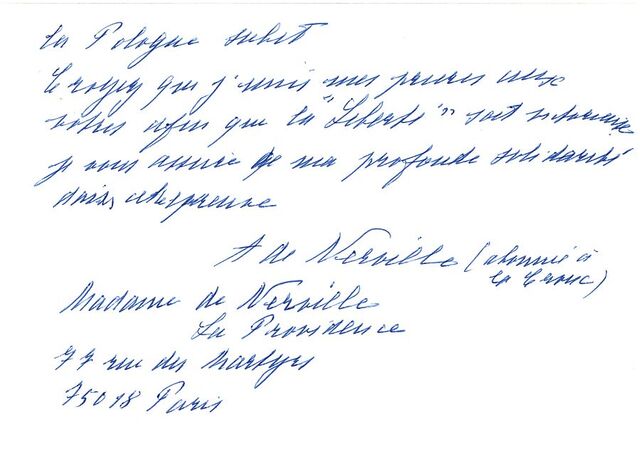 la Pologne subit
Croyez que j'unis mes prières aux
votres afin que la "Liberté" soit victorieuse
je vous assure de ma profonde solidarité
dans cette épreuve
A de Nerville (abonnée à
la Croix)
Madame de Nerville
La Providence
77 rue des Martyrs
75018 Paris